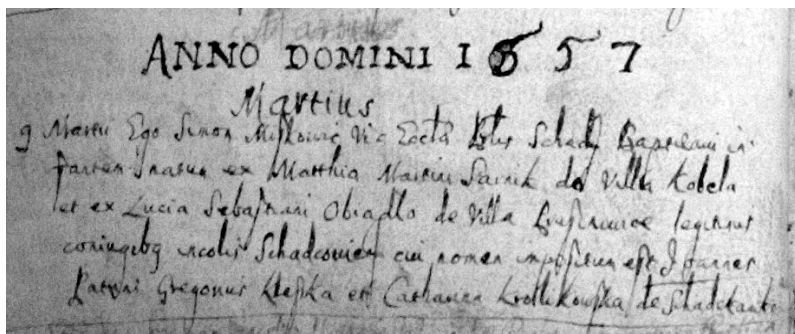 Martius
ANNO DOMINI 1657
Martius
9 Martii Ego Simon Miskowic Vic Eccłae Schad Baptizaui in
fantem natum ex Matthia Martini Sairnik de Villa Kobela
et ex Lucia Sebastiani Obiadlo de Villa legitimis
coniugibq incolis Schadcouien cui nomen impositum est Joannes
Patrini Gregorius Kleska et Catharina Krolikowska de Schadek ambo